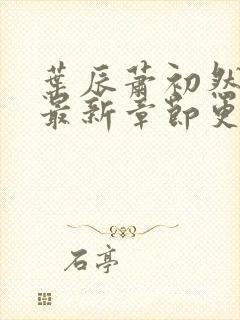 葉辰蕭初然
最新章節更
石亭